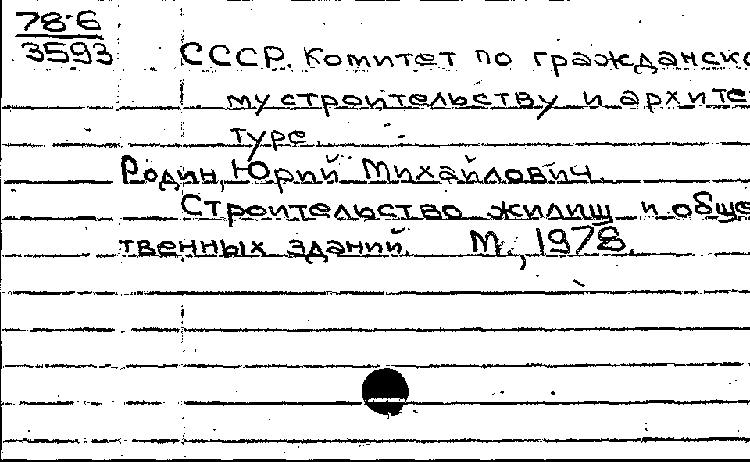 78-6
3593
СССР. Комитет по гражданско
му строительству и архите
туре.
Родин, Юрий Михайлович.
Строительство жилищ и обще
твенных зданий. М., 1978.